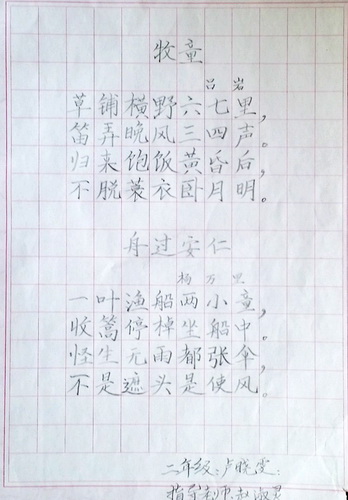 牧童
吕岩
草铺横野六七里，
笛弄晚风三四声。
归来饱饭黄昏后，
不脱蓑衣卧月明。
舟过安仁
杨万里
一叶渔船两小童，
收篙停棹坐船中。
怪生无雨都张伞，
不是遮头是使风。
二年级：卢晓
指导老师：赵淑